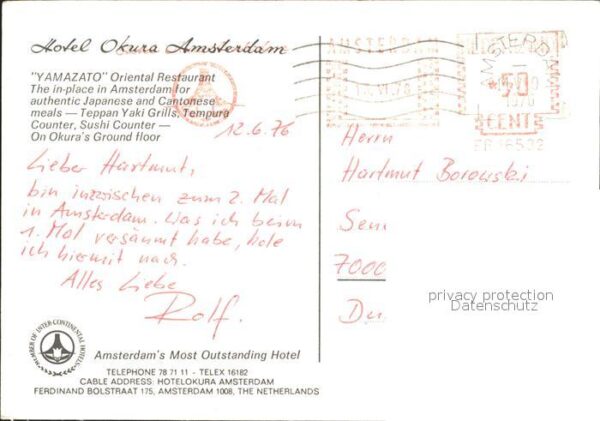 Hotel Okura Amsterdam
"YAMAZATO" Oriental Restaurant
The in-place in Amsterdam for
authentic Japanese and Cantonese
meals — Teppan Yaki Grills, Tempura
Counter, Sushi Counter —
On Okura's Ground floor
12.6.76
Lieber Hartmut,
bin inzwischen zum 2. Mal
in Amsterdam. Was ich beim
1. Mal versäumt habe, hole
ich hiermit nach.
Alles Liebe
Rolf.
MEMBER OF INTER-CONTINENTAL HOTELS
Amsterdam's Most Outstanding Hotel
TELEPHONE 78 71 11 - TELEX 16182
CABLE ADDRESS: HOTELOKURA AMSTERDAM
FERDINAND BOLSTRAAT 175, AMSTERDAM 1008, THE NETHERLANDS
AMSTERDAM
AMSTERDAM
50
1976
CENT
Herrn
Hartmut Borowski
7000
privacy protection
Datenschutz